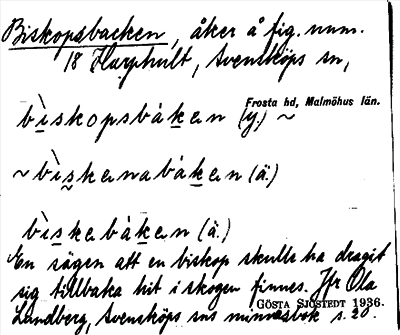 Biskopsbacken, åker å fig. num.
18 Harphult, Svensköps sn,
Frosta hd, Malmöhus län.
bìskopsbàken (y.) ~
~ bìskenabàken (ä.)
bìskebàken (ä.)
En sägen att en biskop skulle ha dragit
sig tillbaka hit i skogen finnes. Jfr Ola
GÖSTA SJÖSTEDT 1936.
Landberg, Svensköps sns minnesbok s. 20.